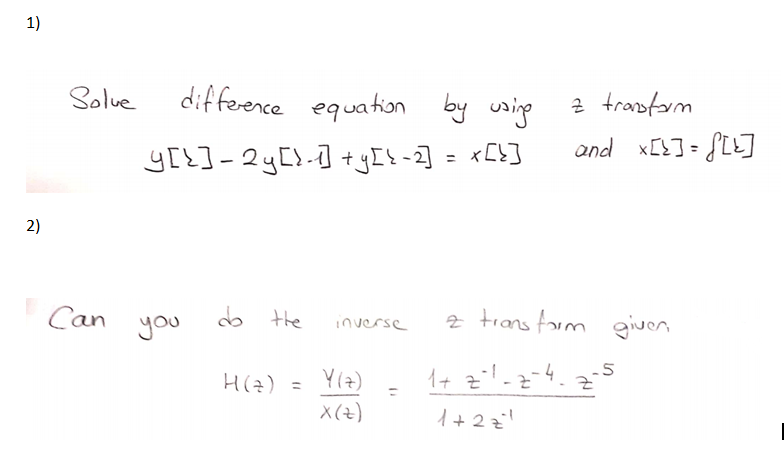 1)
Solve difference equation by using z transform
y[k] - 2y[k-1] + y[k-2] = x[k] and x[k] = δ[k]
2)
Can you do the inverse z transform given
H(z) = Y(z)/X(z) = (1 + z⁻¹ - z⁻⁴ - z⁻⁵)/(1 + 2z⁻¹)